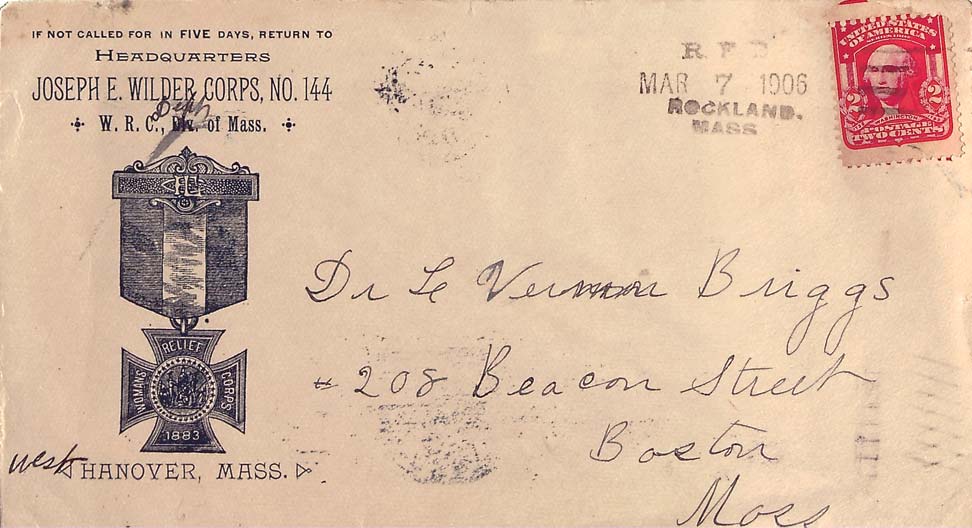 IF NOT CALLED FOR IN FIVE DAYS, RETURN TO
HEADQUARTERS
JOSEPH E. WILDER CORPS, NO. 144
W. R. C., Div. of Mass.
Dept
WOMANS RELIEF CORPS
1883
west HANOVER, MASS.
R. F. D
MAR 7 1906
ROCKLAND.
MASS
UNITED STATES
OF AMERICA
SERIES 1902
2 2
WASHINGTON
POSTAGE
TWO CENTS
Dr Le Vernon Briggs
208 Beacon Street
Boston
Mass